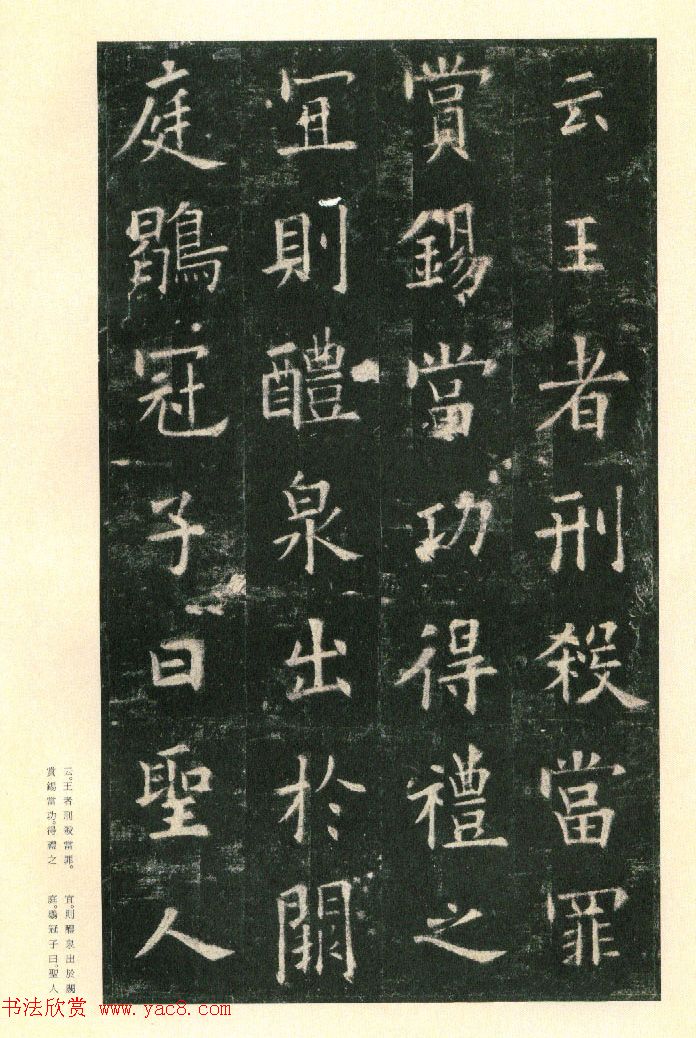 云王者刑殺當罪
賞錫當功得禮之
宜則醴泉出於闕
庭鶡冠子曰聖人
云。王者刑殺當罪。
賞錫當功。得禮之
宜。則醴泉出於闕
庭。鶡冠子曰。聖人
书法欣赏 www.yac8.com